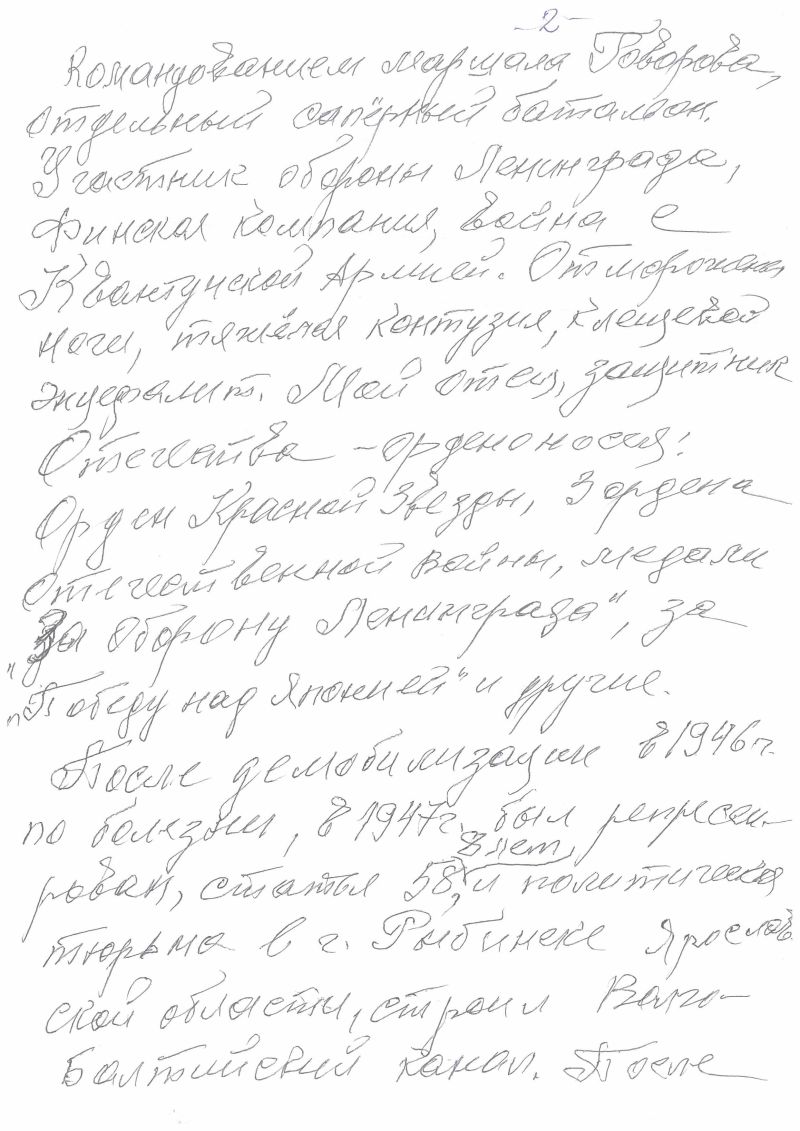 -2-
Командованием маршала Говорова,
отдельный сапёрный батальон.
Участник обороны Ленинграда,
Финская компания, война с
Квантунской Армией. Отморожены
ноги, тяжёлая контузия, клещевой
энцефалит. Мой отец, защитник
Отечества - орденоносец:
Орден Красной Звезды, 3 ордена
Отечественной войны, медали
"За Оборону Ленинграда", за
"Победу над Японией" и другие.
После демобилизации в 1946г.
по болезни, в 1947г. был репресси-
8 лет,
рован, статья 58, и политическая
тюрьма в г. Рыбинске Ярослав-
ской области, строил Волго-
Балтийский канал. После